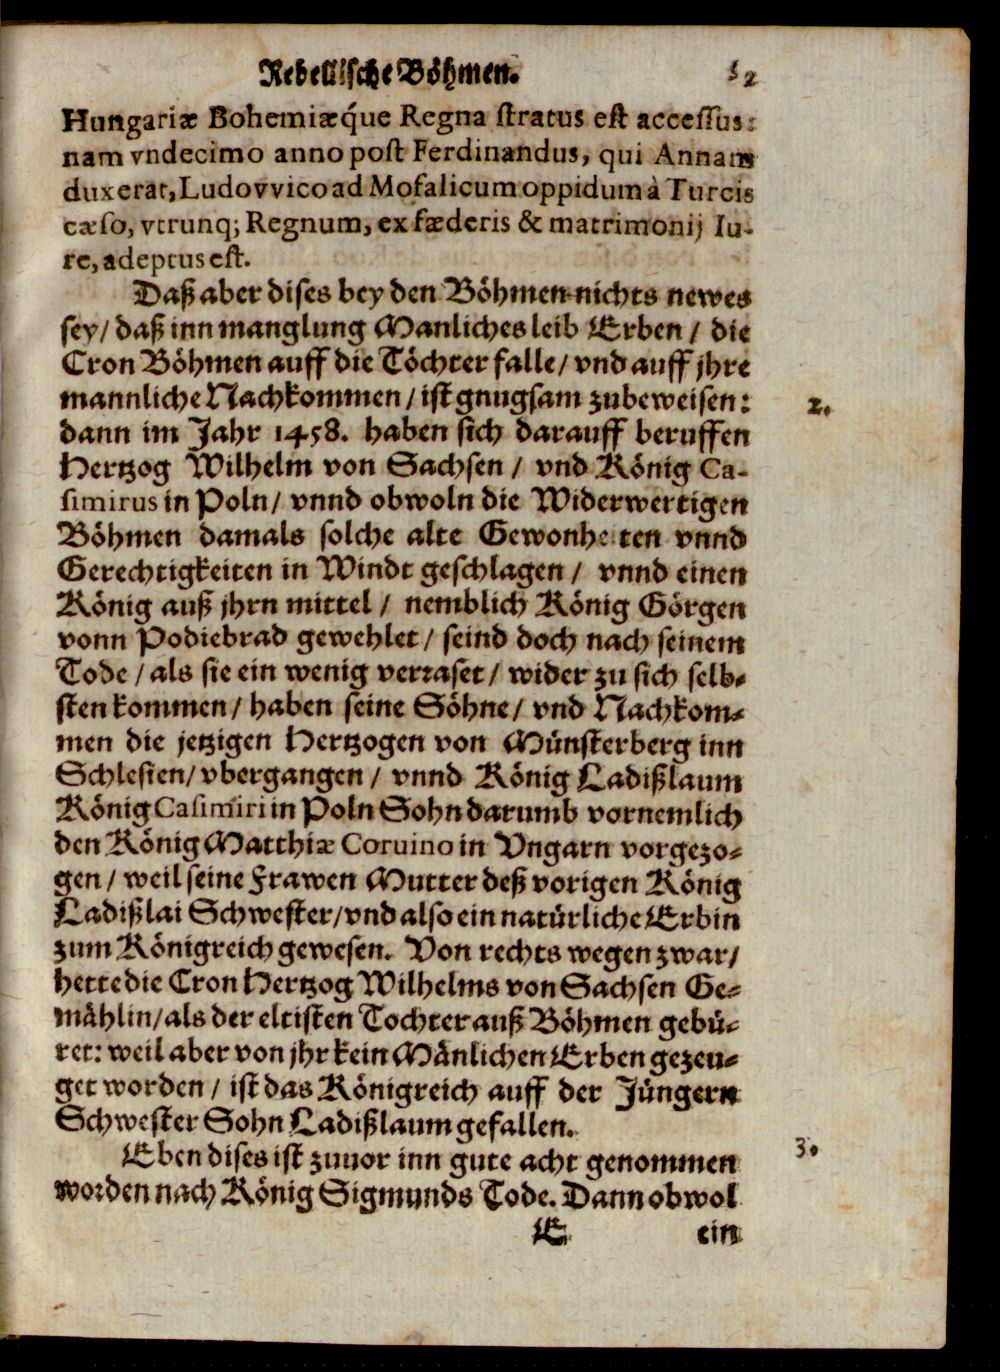 Rebellische Böhmen.
Hungariæ Bohemiæq́ue Regna stratus est accessus:
nam vndecimo anno post Ferdinandus, qui Annam
duxerat, Ludovvico ad Mosalicum oppidum à Turcis
cæso, vtrunq; Regnum, ex fæderis & matrimonij Iu-
re, adeptus est.
Daß aber dises bey den Böhmen nichts newes
sey / daß inn manglung Manliches leib Erben / die
Cron Böhmen auff die Töchter falle / vnd auff jhre
mannliche Nachkommen / ist gnugsam zubeweisen:
2.
dann im Jahr 1458. haben sich darauff beruffen
Hertzog Wilhelm von Sachsen / vnd König Ca-
simirus in Poln / vnnd obwoln die Widerwertigen
Böhmen damals solche alte Gewonheiten vnnd
Gerechtigkeiten in Windt geschlagen / vnnd einen
König auß jhrn mittel / nemblich König Görgen
vonn Podiebrad gewehlet / seind doch nach seinem
Tode / als sie ein wenig verraset / wider zu sich selb-
sten kommen / haben seine Söhne / vnd Nachkom-
men die jetzigen Hertzogen von Münsterberg inn
Schlesien / vbergangen / vnnd König Ladißlaum
König Casimiri in Poln Sohn darumb vornemlich
den König Matthiæ Coruino in Vngarn vorgezo-
gen / weil seine Frawen Mutter deß vorigen König
Ladißlai Schwester / vnd also ein natürliche Erbin
zum Königreich gewesen. Von rechts wegen zwar /
hette die Cron Hertzog Wilhelms von Sachsen Ge-
mählin / als der eltisten Tochter auß Böhmen gebü-
ret: weil aber von jhr kein Mänlichen Erben gezeu-
get worden / ist das Königreich auff der Jüngern
Schwester Sohn Ladißlaum gefallen.
3.
Eben dises ist zuuor inn gute acht genommen
worden nach König Sigmunds Tode. Dann obwol
E ein